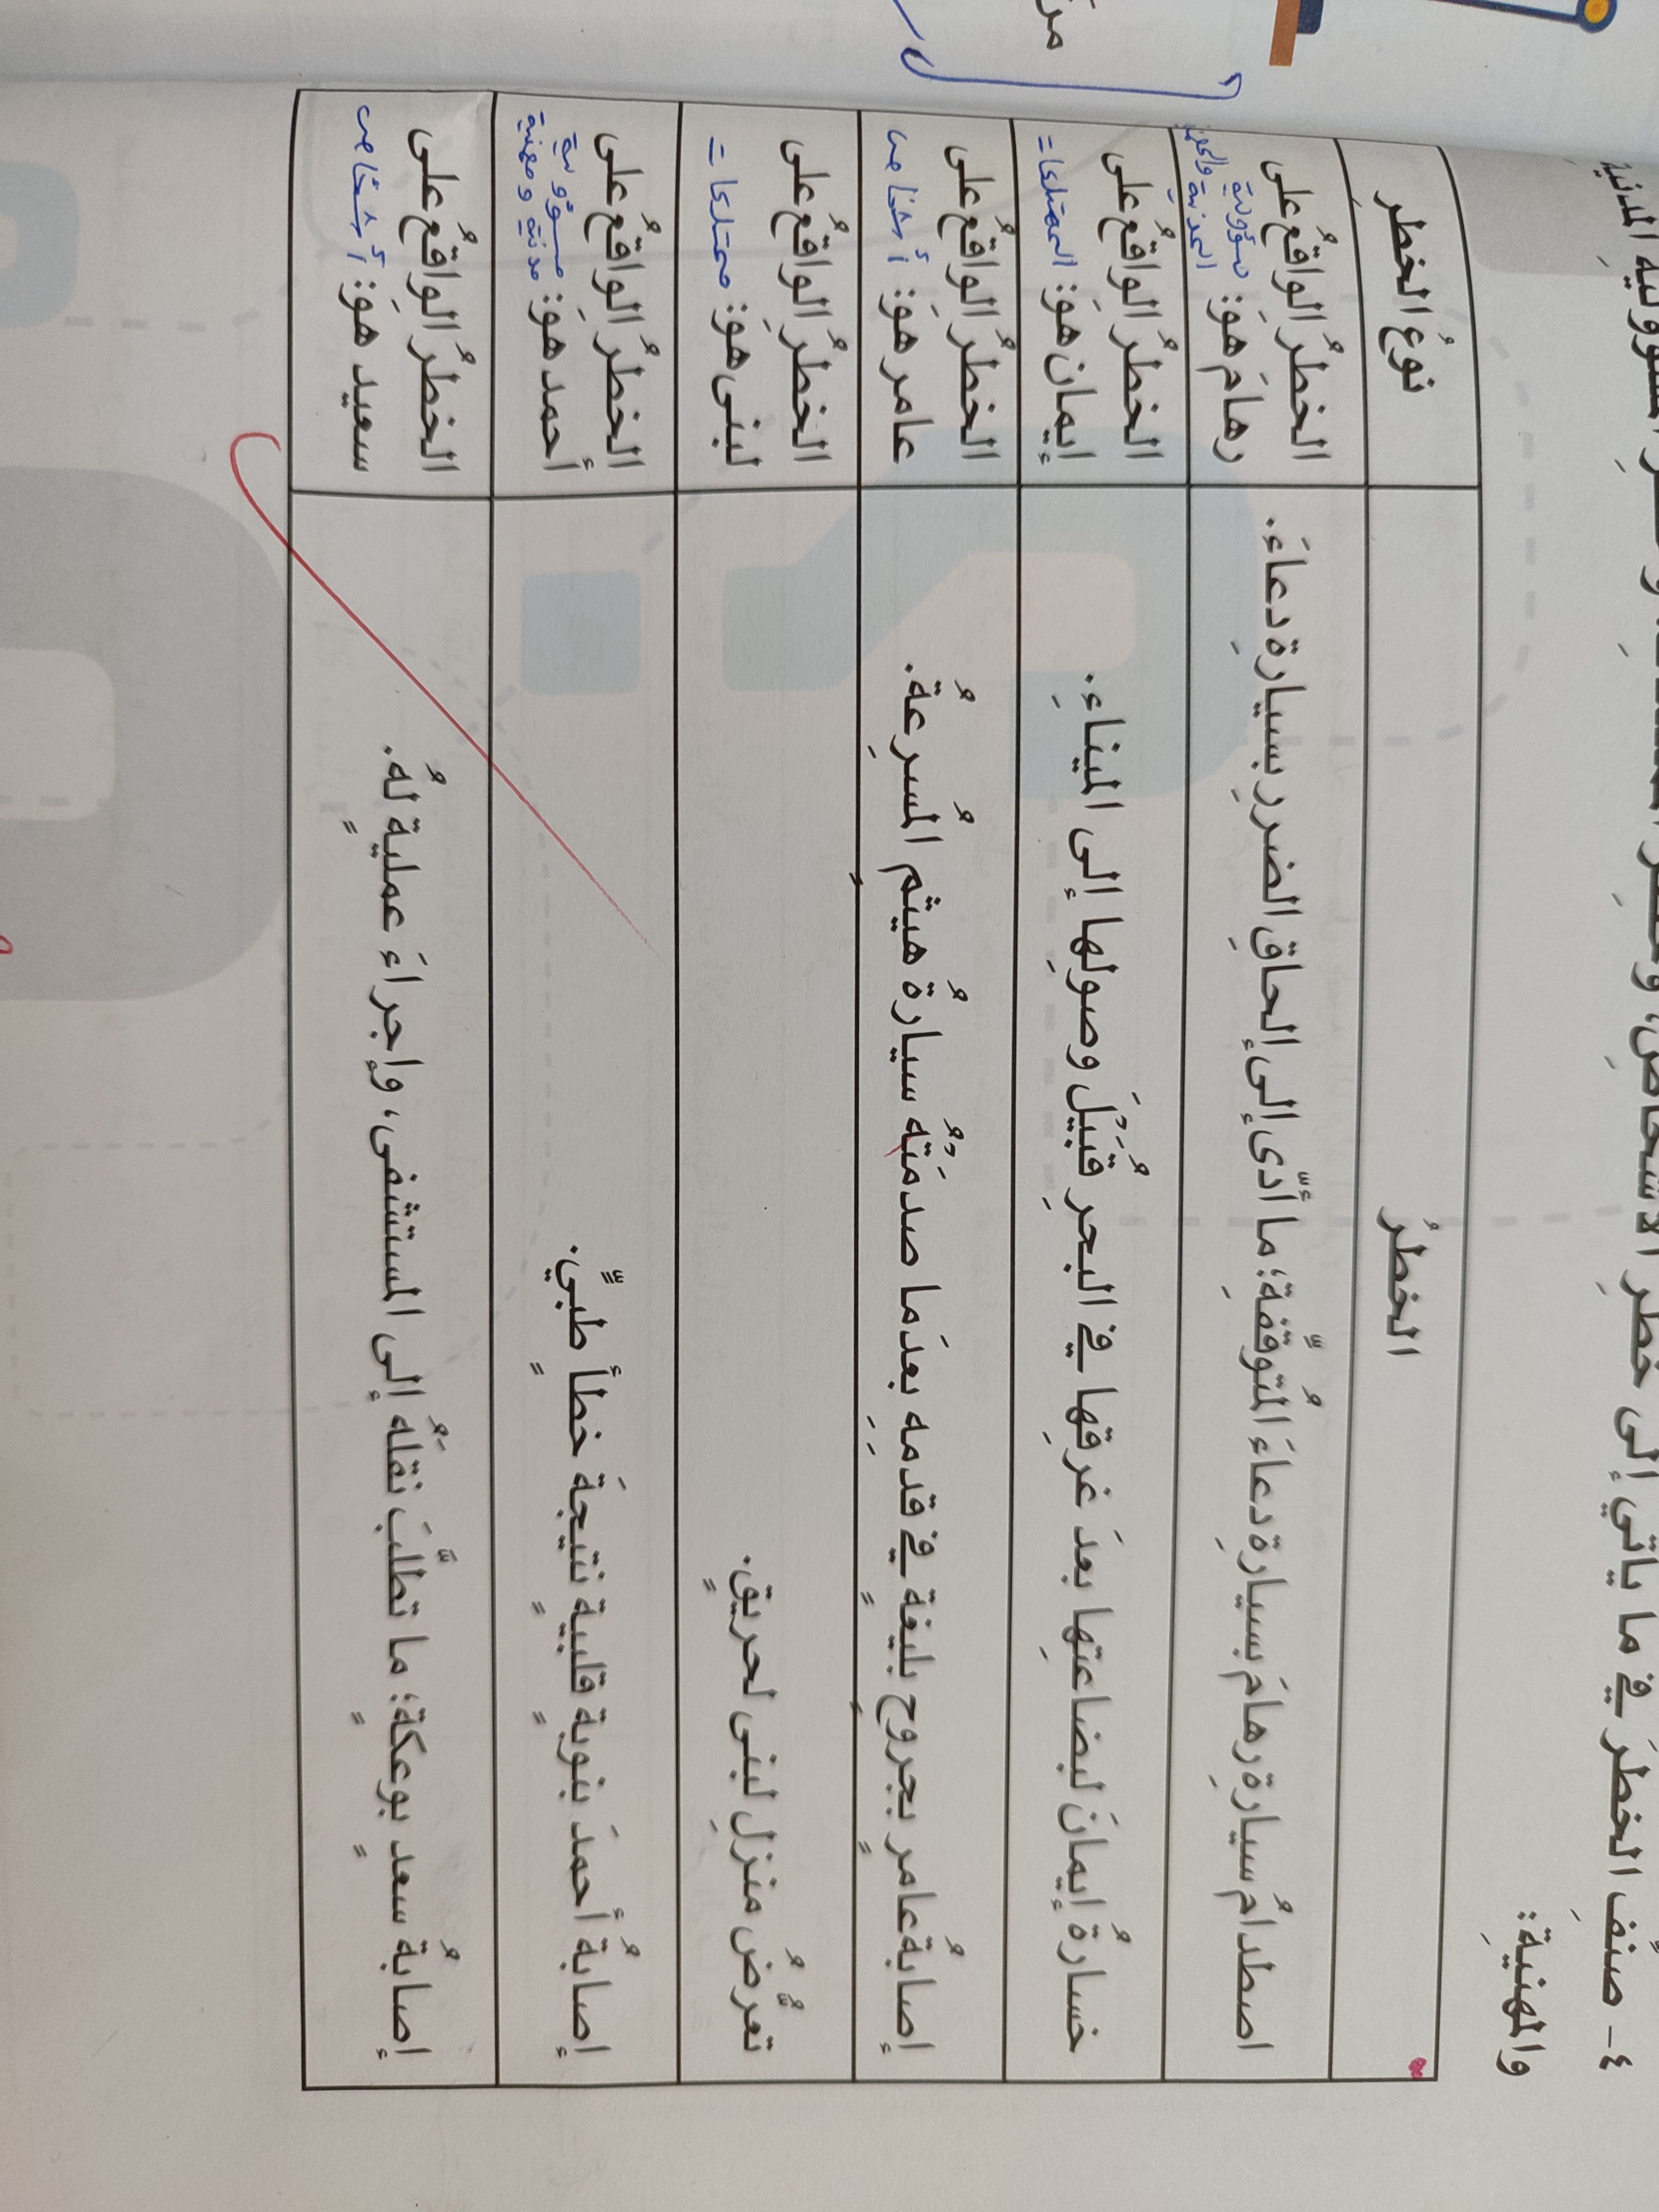 ٤- صنف الخطر في ما يأتي إلى خطر الأشخاص،
والمهنية:
الخطرُ
نوعُ الخطرِ
اصطدامُ سيارةِ رهامَ بسيارةِ دعاءَ المُتوقِّفةِ؛ ما أدّى إلى إلحاقِ الضررِ بسيارةِ دعاءَ.
الخطرُ الواقعُ على
رهامَ هوَ: مسؤولية
المدنية والمهنية
خسارةُ إيمانَ لبضاعتِها بعدَ غرقِها في البحرِ قُبَيْلَ وصولِها إلى الميناءِ.
الخطرُ الواقعُ على
إيمان هوَ: الممتلكات
إصابةُ عامرٍ بجروحٍ بليغةٍ في قدمِه بعدَما صدمَتْهُ سيارةُ هيثمِ المُسرِعةُ.
الخطرُ الواقعُ على
عامر هوَ: أشخاص
تعرُّضُ منزلِ لبنى لحريقٍ.
الخطرُ الواقعُ على
لبنى هوَ: ممتلكات
إصابةُ أحمدَ بنوبةٍ قلبيةٍ نتيجةَ خطأٍ طبيٍّ.
الخطرُ الواقعُ على
أحمد هوَ: مسؤولية
مدنية ومهنية
إصابةُ سعدٍ بوعكةٍ؛ ما تطلَّبَ نقلَهُ إلى المستشفى، وإجراءَ عمليةٍ لهُ.
الخطرُ الواقعُ على
سعيد هوَ: أشخاص